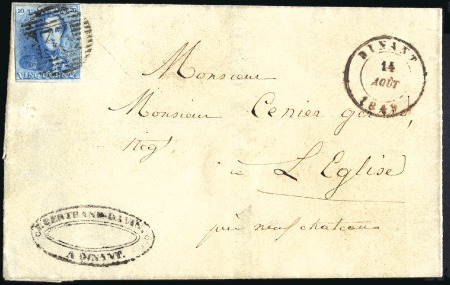 VINGT CENT
DINANT
14
AOÛT
1849
Monsieur
Monsieur Cenier
Negt.
à L'Eglise
près neufchateau
BERTRAND-DAVIN
A DINANT.